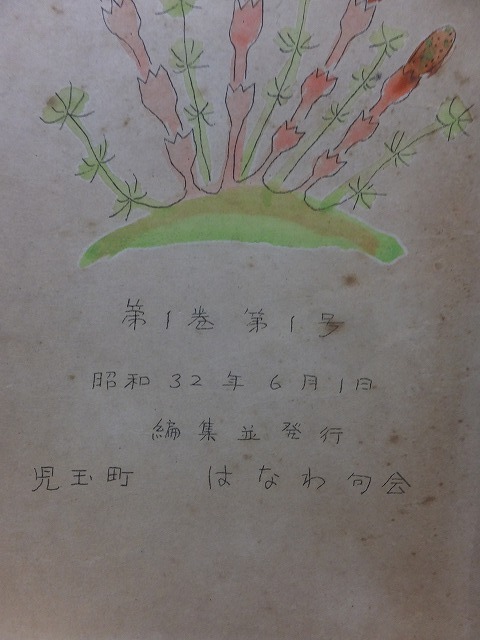 第1巻 第1号
昭和32年6月1日
編集並発行
児玉町 はなわ句会